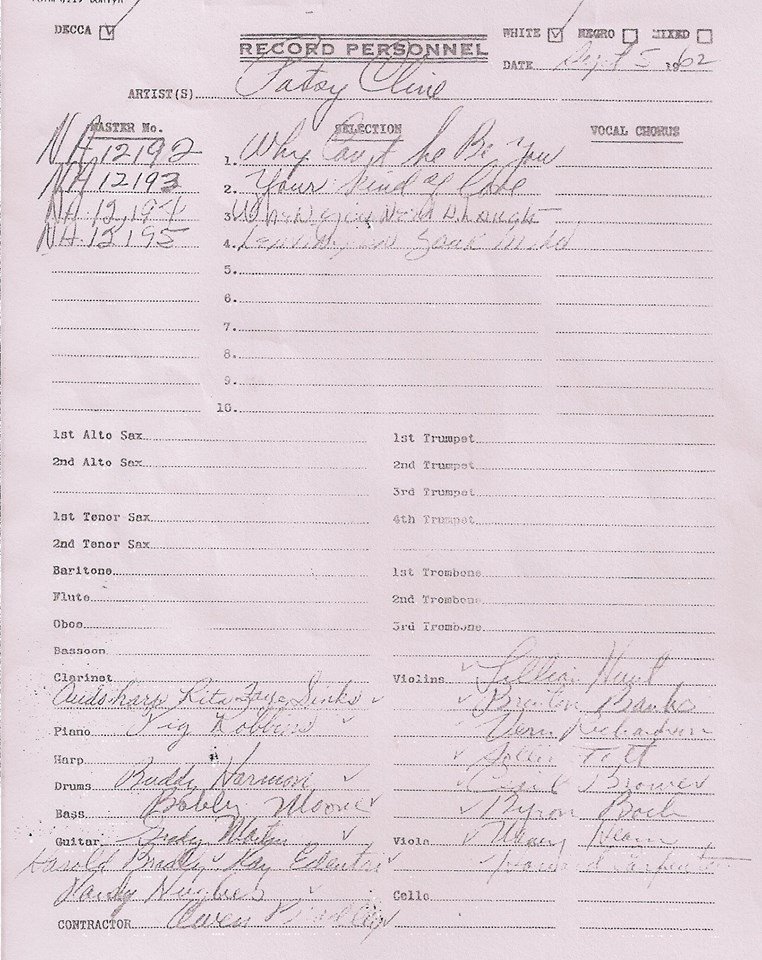 DECCA
WHITE NEGRO MIXED
RECORD PERSONNEL
DATE Sept 5 1962
ARTIST(S) Patsy Cline
MASTER No. SELECTION VOCAL CHORUS
NA 12192 1. Why Can't he Be You
NA 12193 2. Your Kind of Love
NA 12,194 3. When You Need A Laugh
NA 12195 4. Leaving on Your Mind
5.
6.
7.
8.
9.
10.
1st Alto Sax 1st Trumpet
2nd Alto Sax 2nd Trumpet
3rd Trumpet
1st Tenor Sax 4th Trumpet
2nd Tenor Sax
Baritone 1st Trombone
Flute 2nd Trombone
Oboe 3rd Trombone
Bassoon
Clarinet Violins Lillian Hunt
Audoharp Rita Faye Sinks Brenton Banks
Piano Pig Robbins Vern Richardson
Harp
Drums Buddy Harmon
Bass Bobby Moore Byron Bach
Guitar Grady Martin Viola
Harold Bradley Ray Edenton
Randy Hughes Cello
CONTRACTOR Owen Bradley